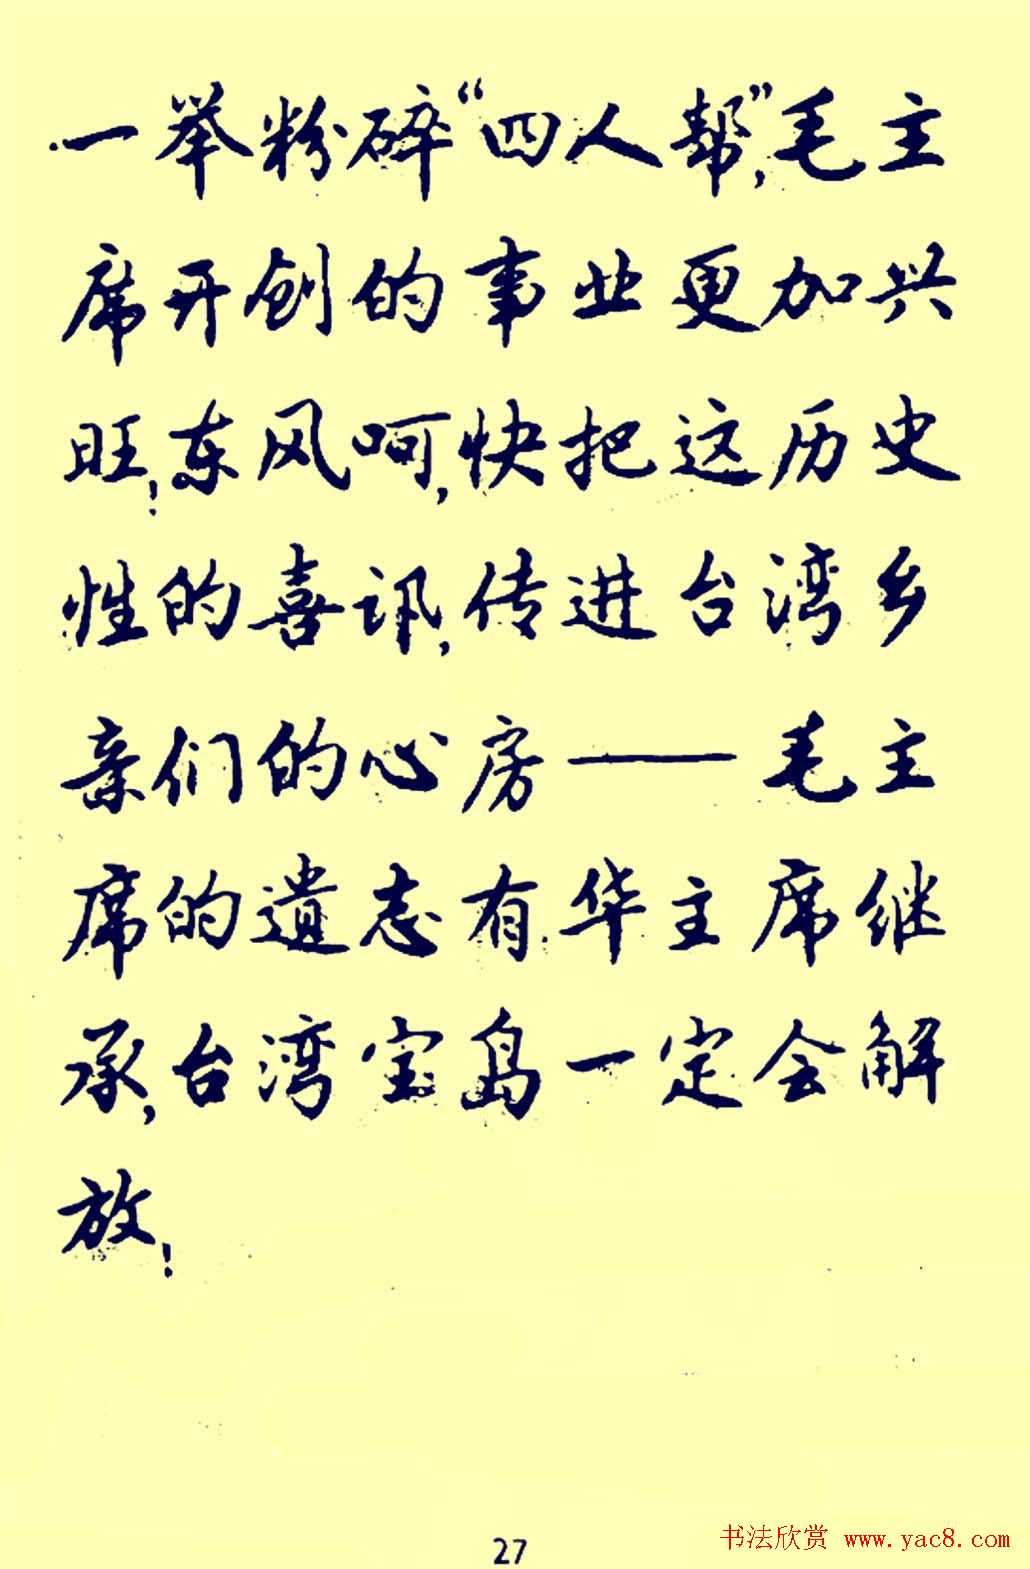 一举粉碎“四人帮”,毛主
席开创的事业更加兴
旺!东风呵,快把这历史
性的喜讯,传进台湾乡
亲们的心房——毛主
席的遗志有华主席继
承,台湾宝岛一定会解
放!
27
书法欣赏 www.yac8.com